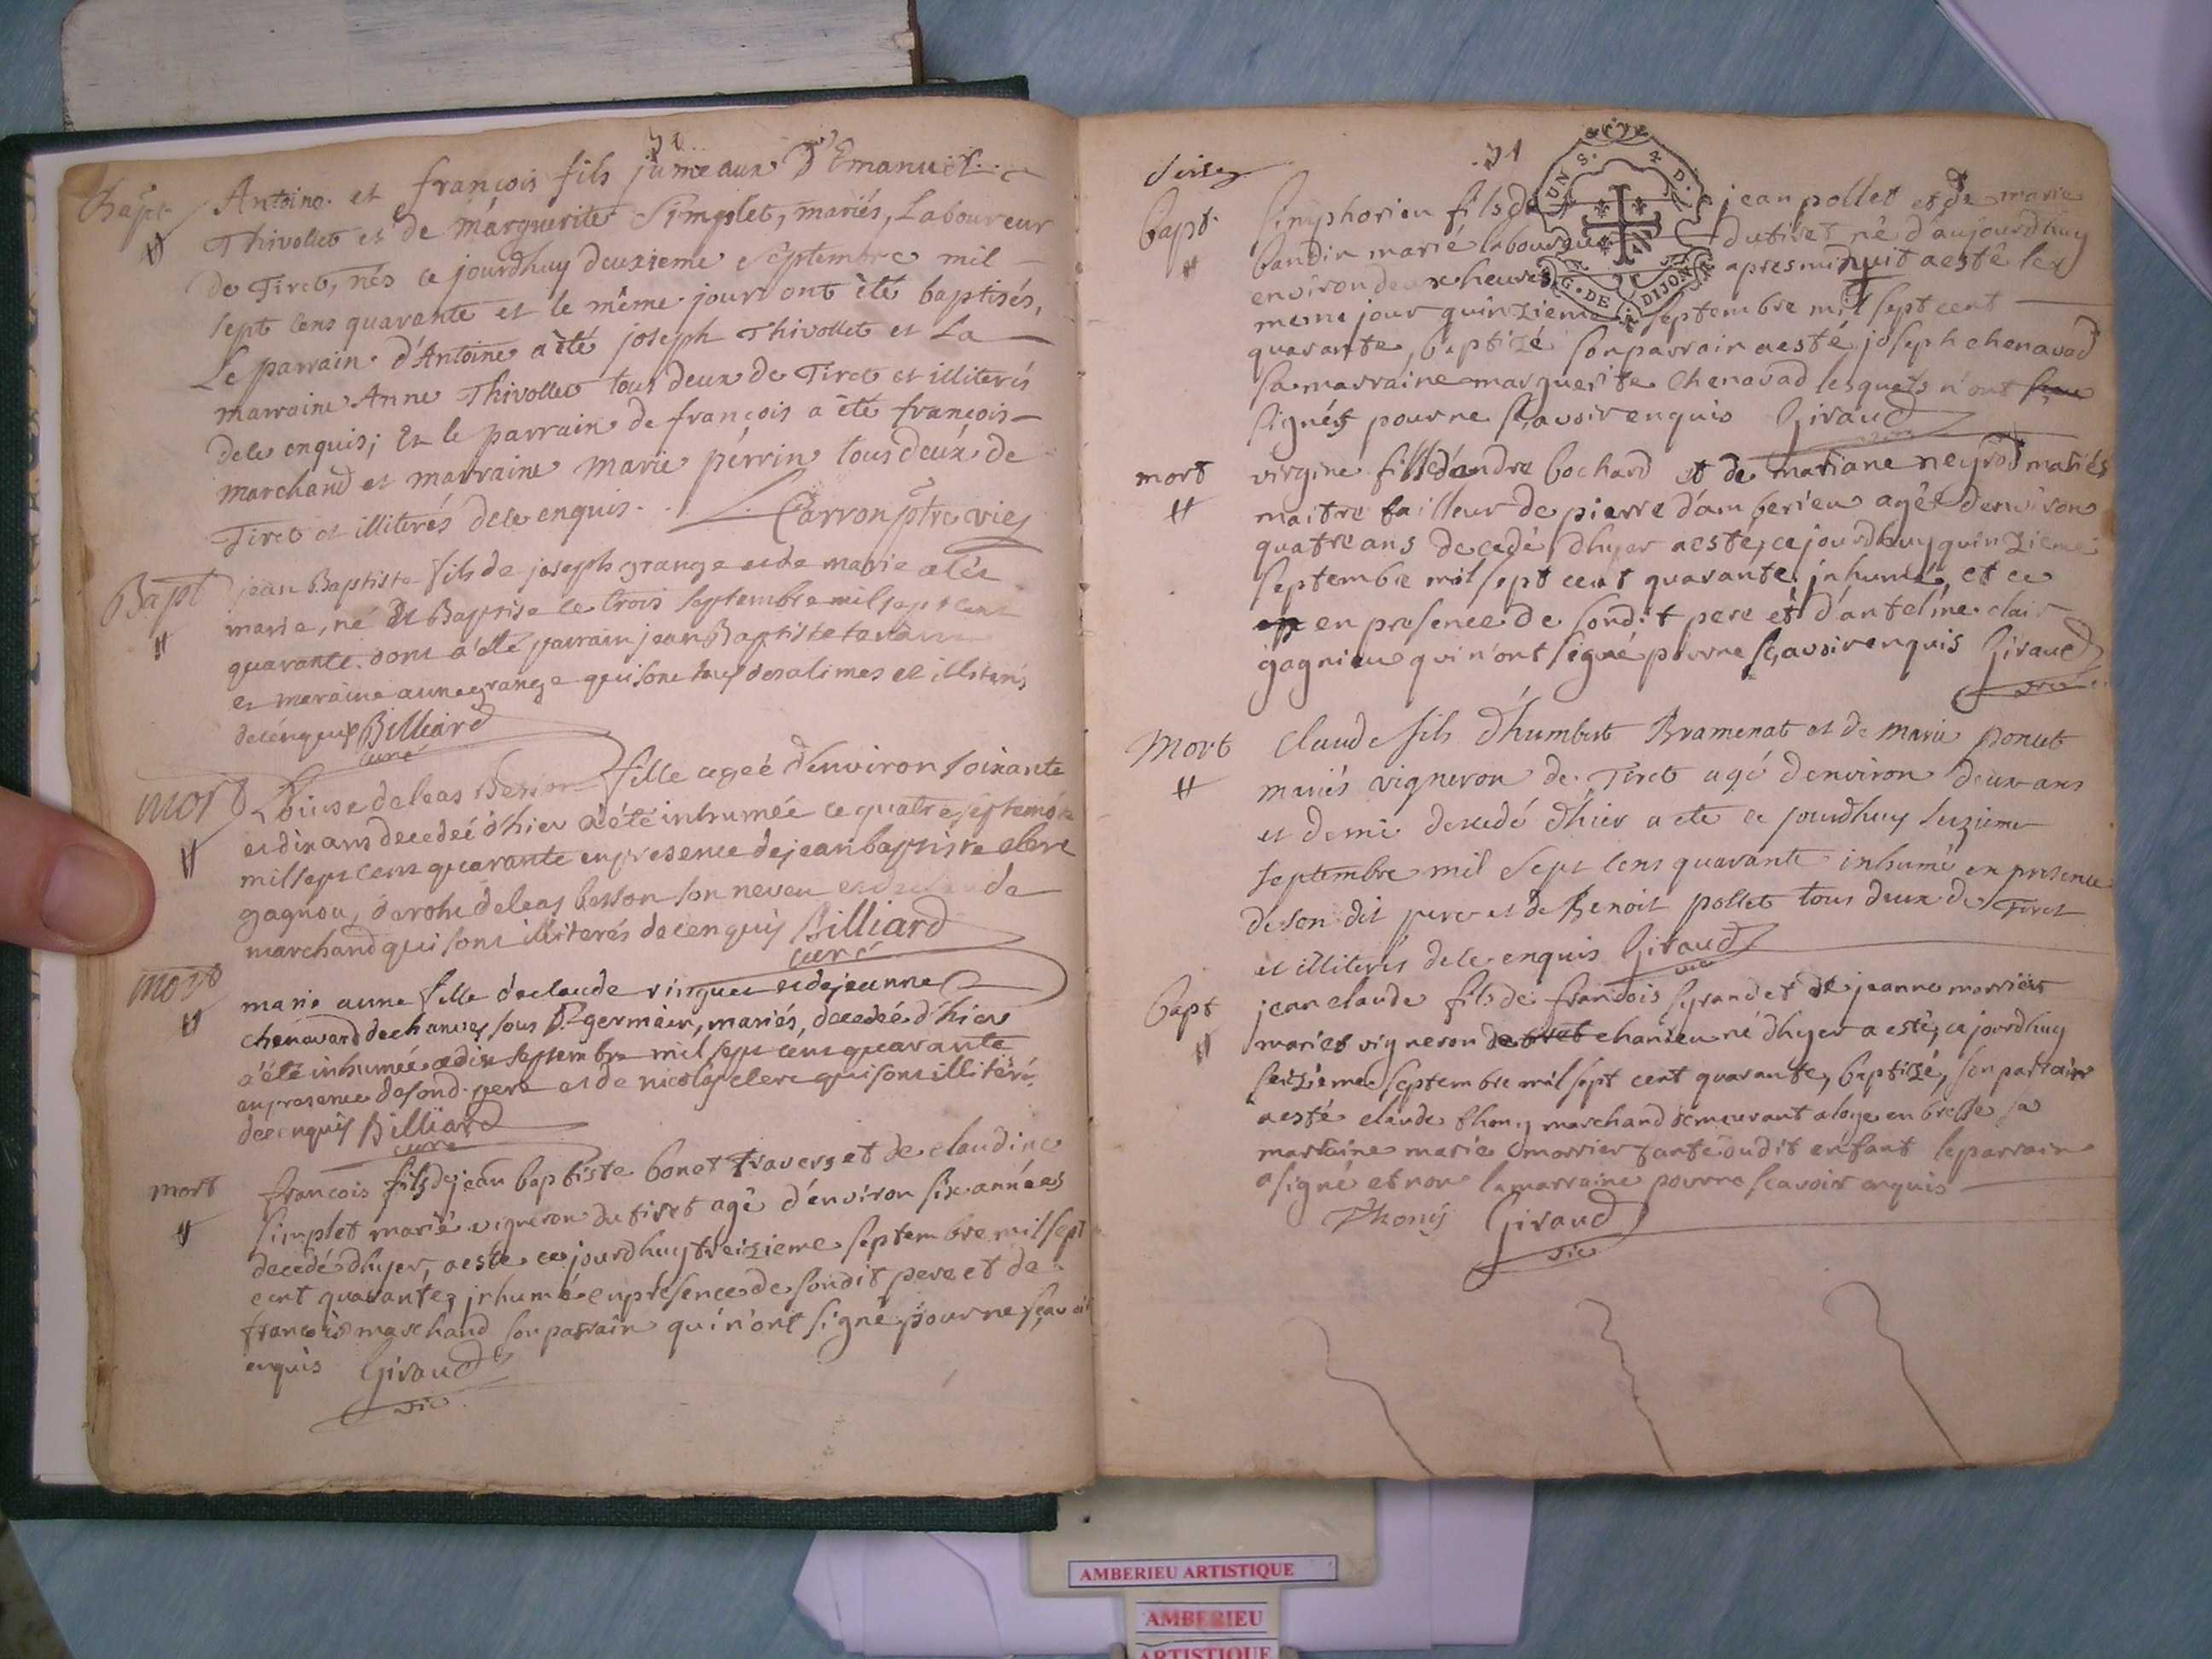 Bapt
Antoine et françois fils jumeaux D'Emanuel
Thivollet et de marguerite Simplet, mariés, Laboureur
de Tiret, nés ce jourdhuy deuxieme Septembre mil
sept cens quarante et le même jour ont été baptisés,
Le parrain d'Antoine a été joseph Thivollet et La
marraine Anne Thivollet tous deux de Tiret et illiterés
dele enquis; Et le parrain de françois a été françois
marchand et marraine marie perrin tous deux de
Tiret et illiterés dele enquis. Carron ptre vic
Bapt
jean Baptiste fils de joseph grange et de marie
marie, né Et Baptise le trois septembre mil sept cent
quarante. dont a été parrain jean Baptiste
et maraine anne grange qui sont tous des alimes et illiterés
de enquis Billiard
curé
mort
Louise deleas fille ageé d'environ soixante
et dix ans decedeé d'hier a été inhumée ce quatre septembre
mil sept cens quarante en presence de jean baptiste clerc
gagnou, deleas besson son neveu
marchand qui sont illiterés de enquis Billiard
curé
mort
marie anne fille de claude vinguet et de jeanne
chenavard de chanves sous St germain, mariés, decedeé d'hier
a été inhumée ce dix septembre mil sept cens quarante
en presence de sond. pere et de nicolas clerc qui sont illiterés
de enquis Billiard
curé
mort
francois fils de jean baptiste bonet travers et de claudine
simplet marié vigneron du tiret agé d'environ six années
decedé dhyer, a esté ce jourdhuy treizieme septembre mil sept
cent quarante, jnhumé en présence de sondit pere et de
françois marchand son parrain qui n'ont signé pour ne sçavoir
enquis Giraud
vic
31
UN S. 4 D.
G. DE DIJON
bapt.
simphorien fils de jean pollet et de marie
baudin marié laboureur du tiret né d'aujourdhuy
environ deux heures apres minuit a esté le
meme jour quinzieme septembre mil sept cent
quarante, baptizé son parrain a esté joseph chenavad
sa marraine marguerite chenavad lesquels n'ont sçeu
signés pour ne sçavoir enquis Giraud
mort
virgine fille d'andre bochard et de mariane neyrod mariés
maitre tailleur de pierre d'amberieu agée denviron
quatre ans decedé dhyer a esté, ce jourdhuy quinzieme
septembre mil sept cent quarante, jnhumé, et ce
en presence de sondit pere et d'antelme clair
gagnieu qui n'ont signé pour ne sçavoir enquis Giraud
vic
Mort
Claude fils d'humbert Bramenat et de marie poncet
mariés vigneron de Tiret agé d'environ deux ans
et demi decedé d'hier a ete ce jourdhuy seizieme
septembre mil sept cens quarante inhumé en presence
de son dit pere et de Benoit pollet tous deux de Tiret
et illiterés dele enquis Giraud
vic
bapt
jean claude fils de francois syrand et de jeanne morrier
mariés vigneron de tiret chanteu né dhyer a esté, ce jourdhuy
seizieme septembre mil sept cent quarante, baptizé, son parrain
a esté claude thony marchand demeurant a loye en bresse sa
marraine marie morrier tante dudit enfant le parrain
a signé et non la marraine pour ne scavoir enquis
Thonÿ Giraud
vic
AMBERIEU ARTISTIQUE
AMBERIEU
ARTISTIQUE